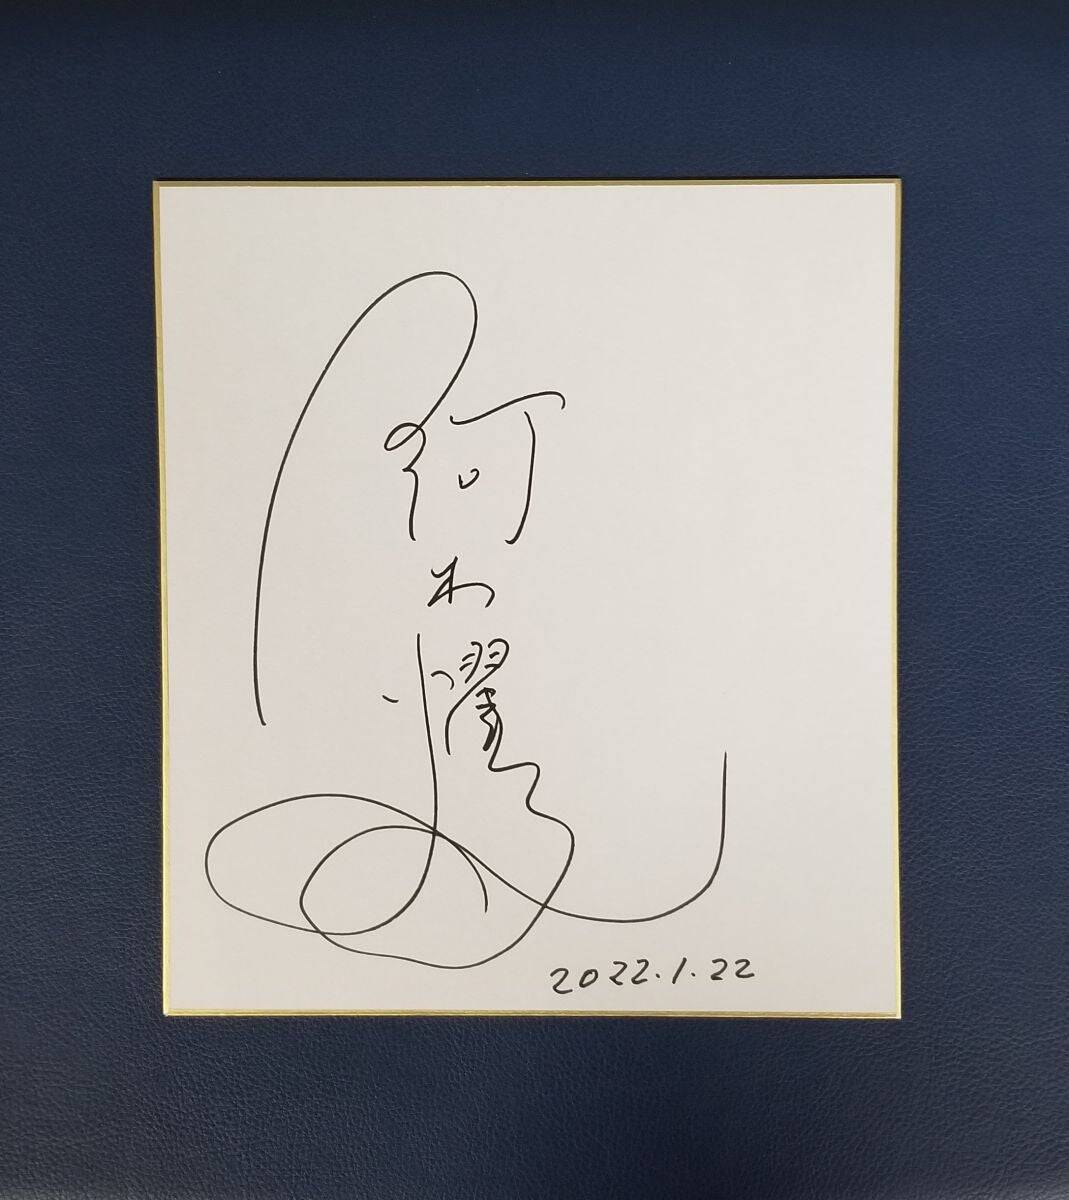 阿木燿子
2022.1.22